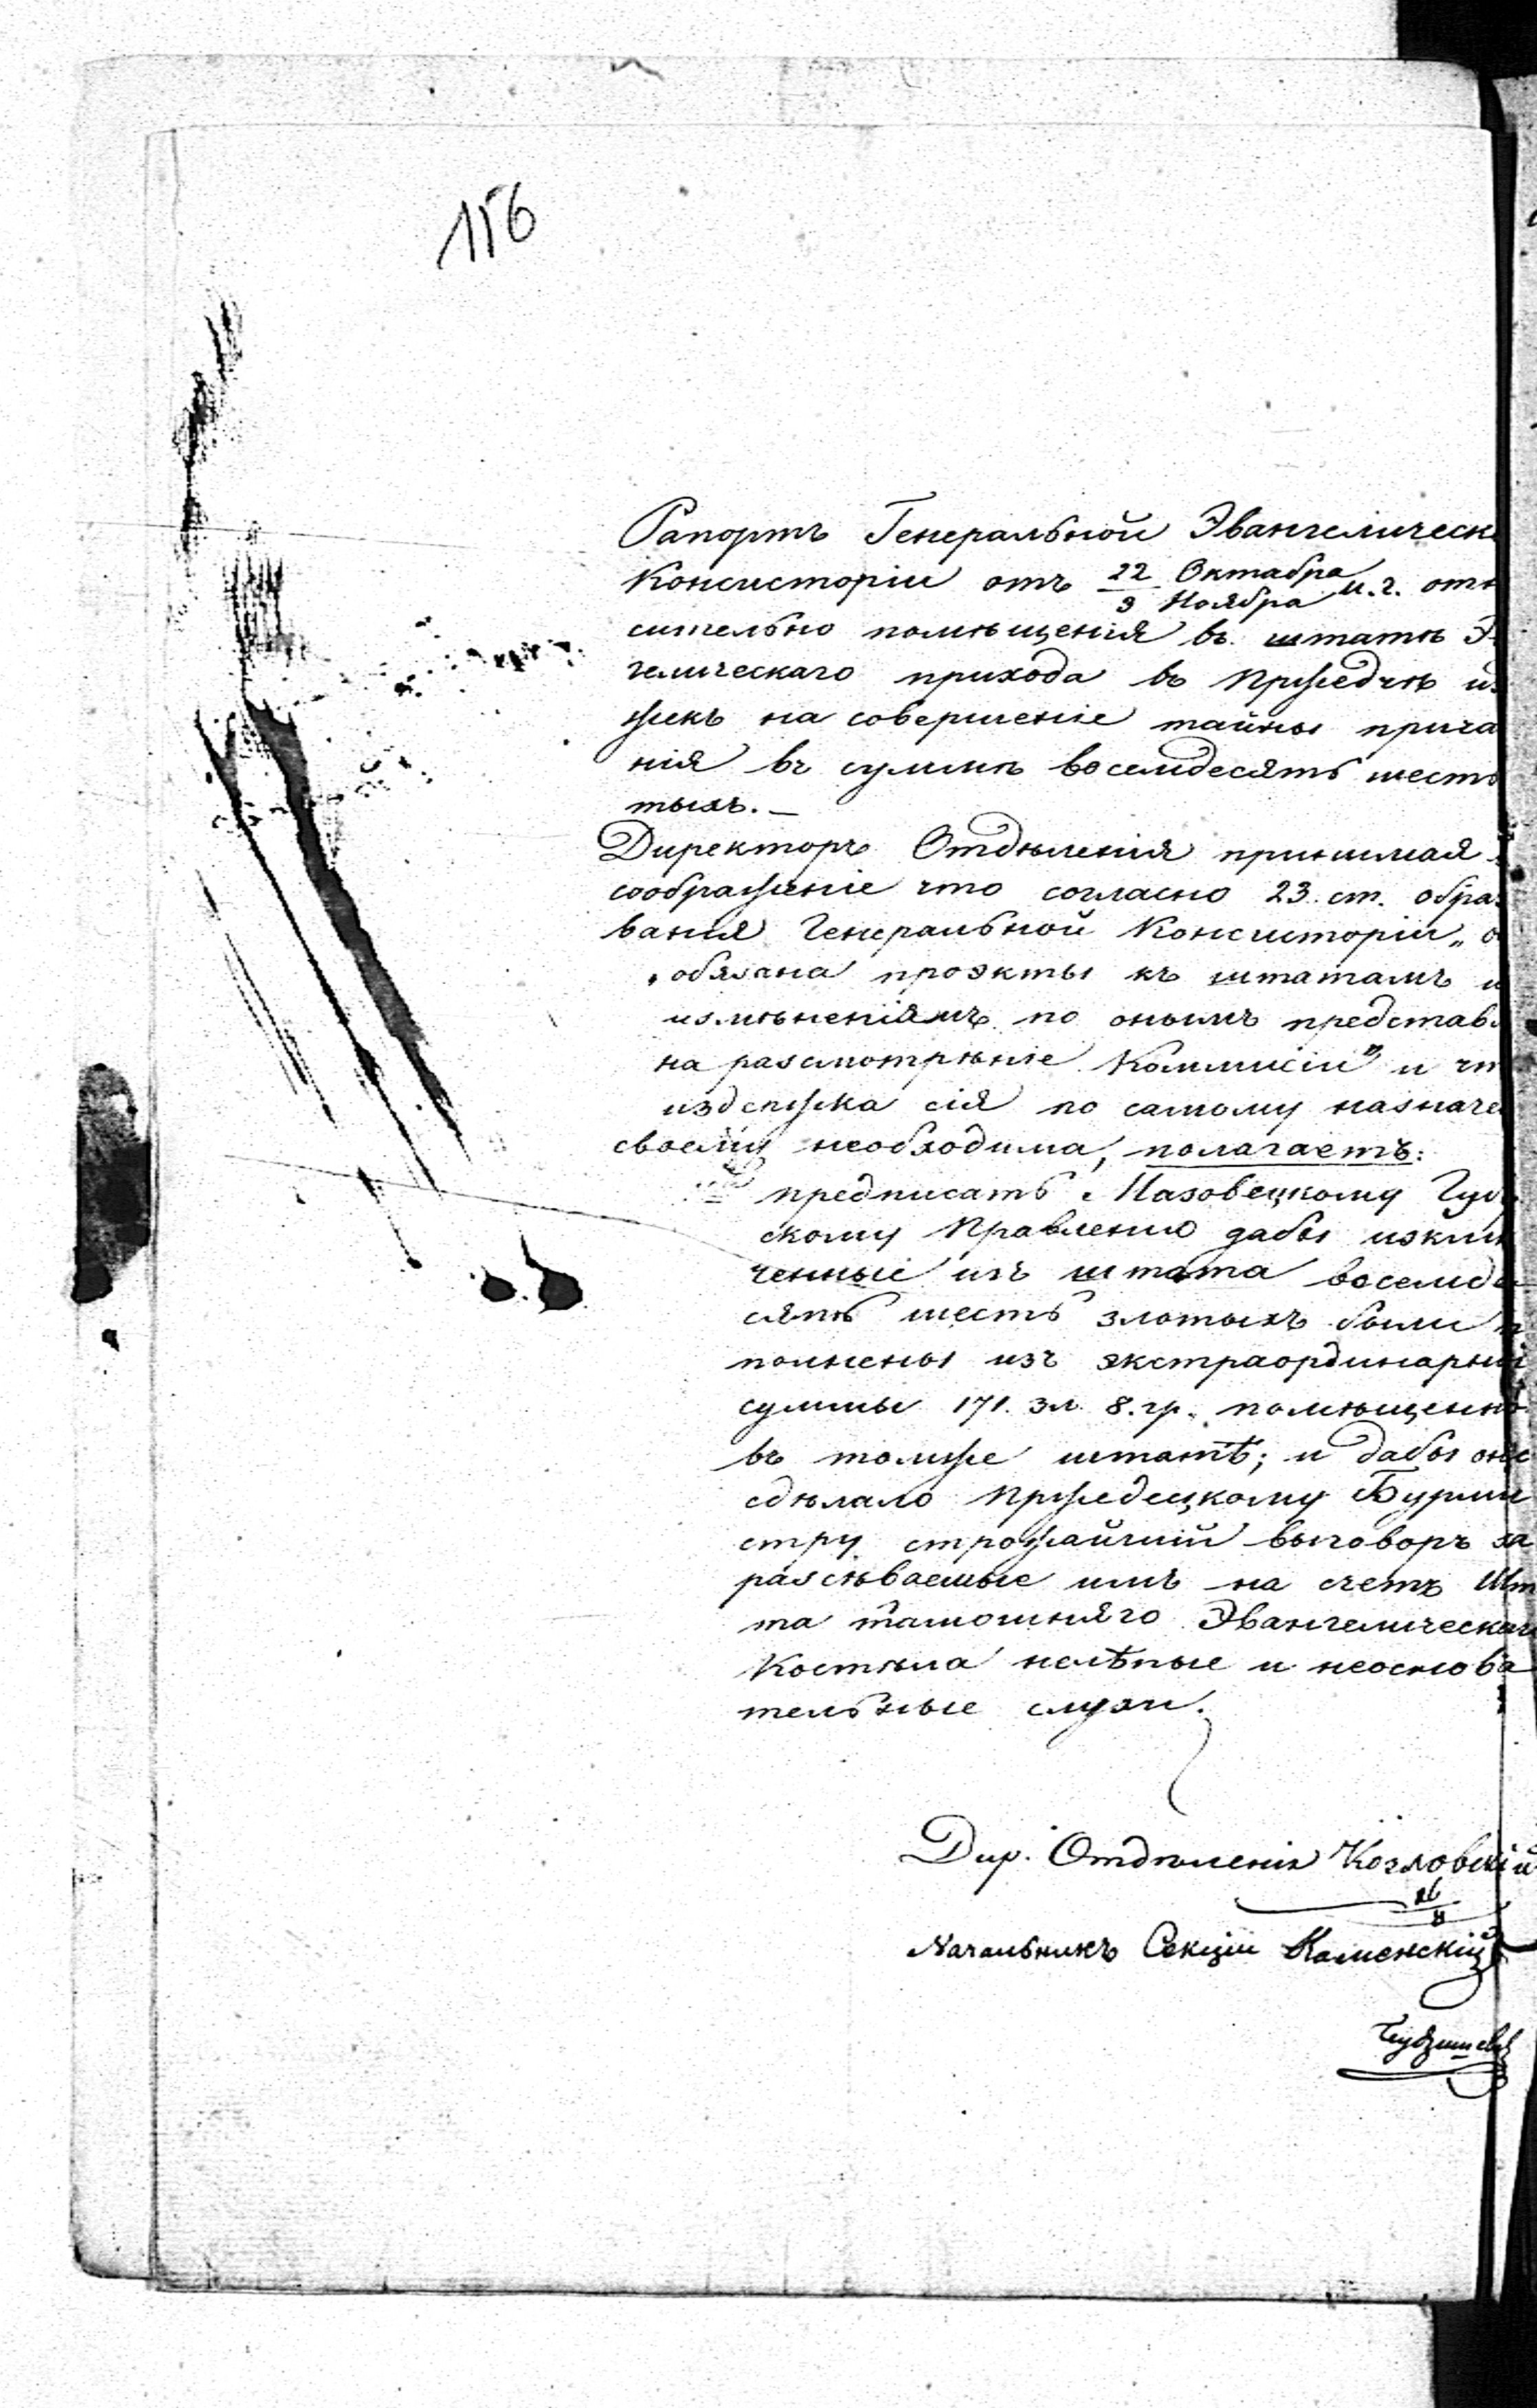 156
Рапортъ Генеральной Эвангелическ
Консисторіи отъ 22 Октабра / 3 Ноября и.г. отн
сительно помѣщенія въ штатѣ Э
гелическаго прихода въ Пржедчѣ из
жекъ на совершеніе тайны прича
нія въ суммѣ восемдесять шесть
тыхъ. —
Директоръ Отдѣленія принимая
соображеніе что согласно 23. ст. обра
ванія Генеральной Консисторіи „о
„обязана проэкты къ штатамъ и
измѣненіямъ по онымъ представ
на разсмотрѣніе Коммисіи" и чт
издержка сія по самому назначе
своему необходима, полагаетъ:
предписать Мазовецкому Губ
скому Правленію дабы изклю
ченные изъ штата восемде
сять шесть злотыхъ были п
полнены изъ экстраординарной
суммы 171. зл 8. гр. помѣщенно
въ томже штатѣ; и дабы оно
сдѣлало Пржедецкому Бурми
стру строжайшій выговоръ за
разсѣваемые имъ на счетъ Шт
та тамошняго Эвангелическаго
Костела нелѣпые и неоснова
тельные слухи.
Дир. Отдѣленія Козловскій
Начальникъ Секціи Каменскій